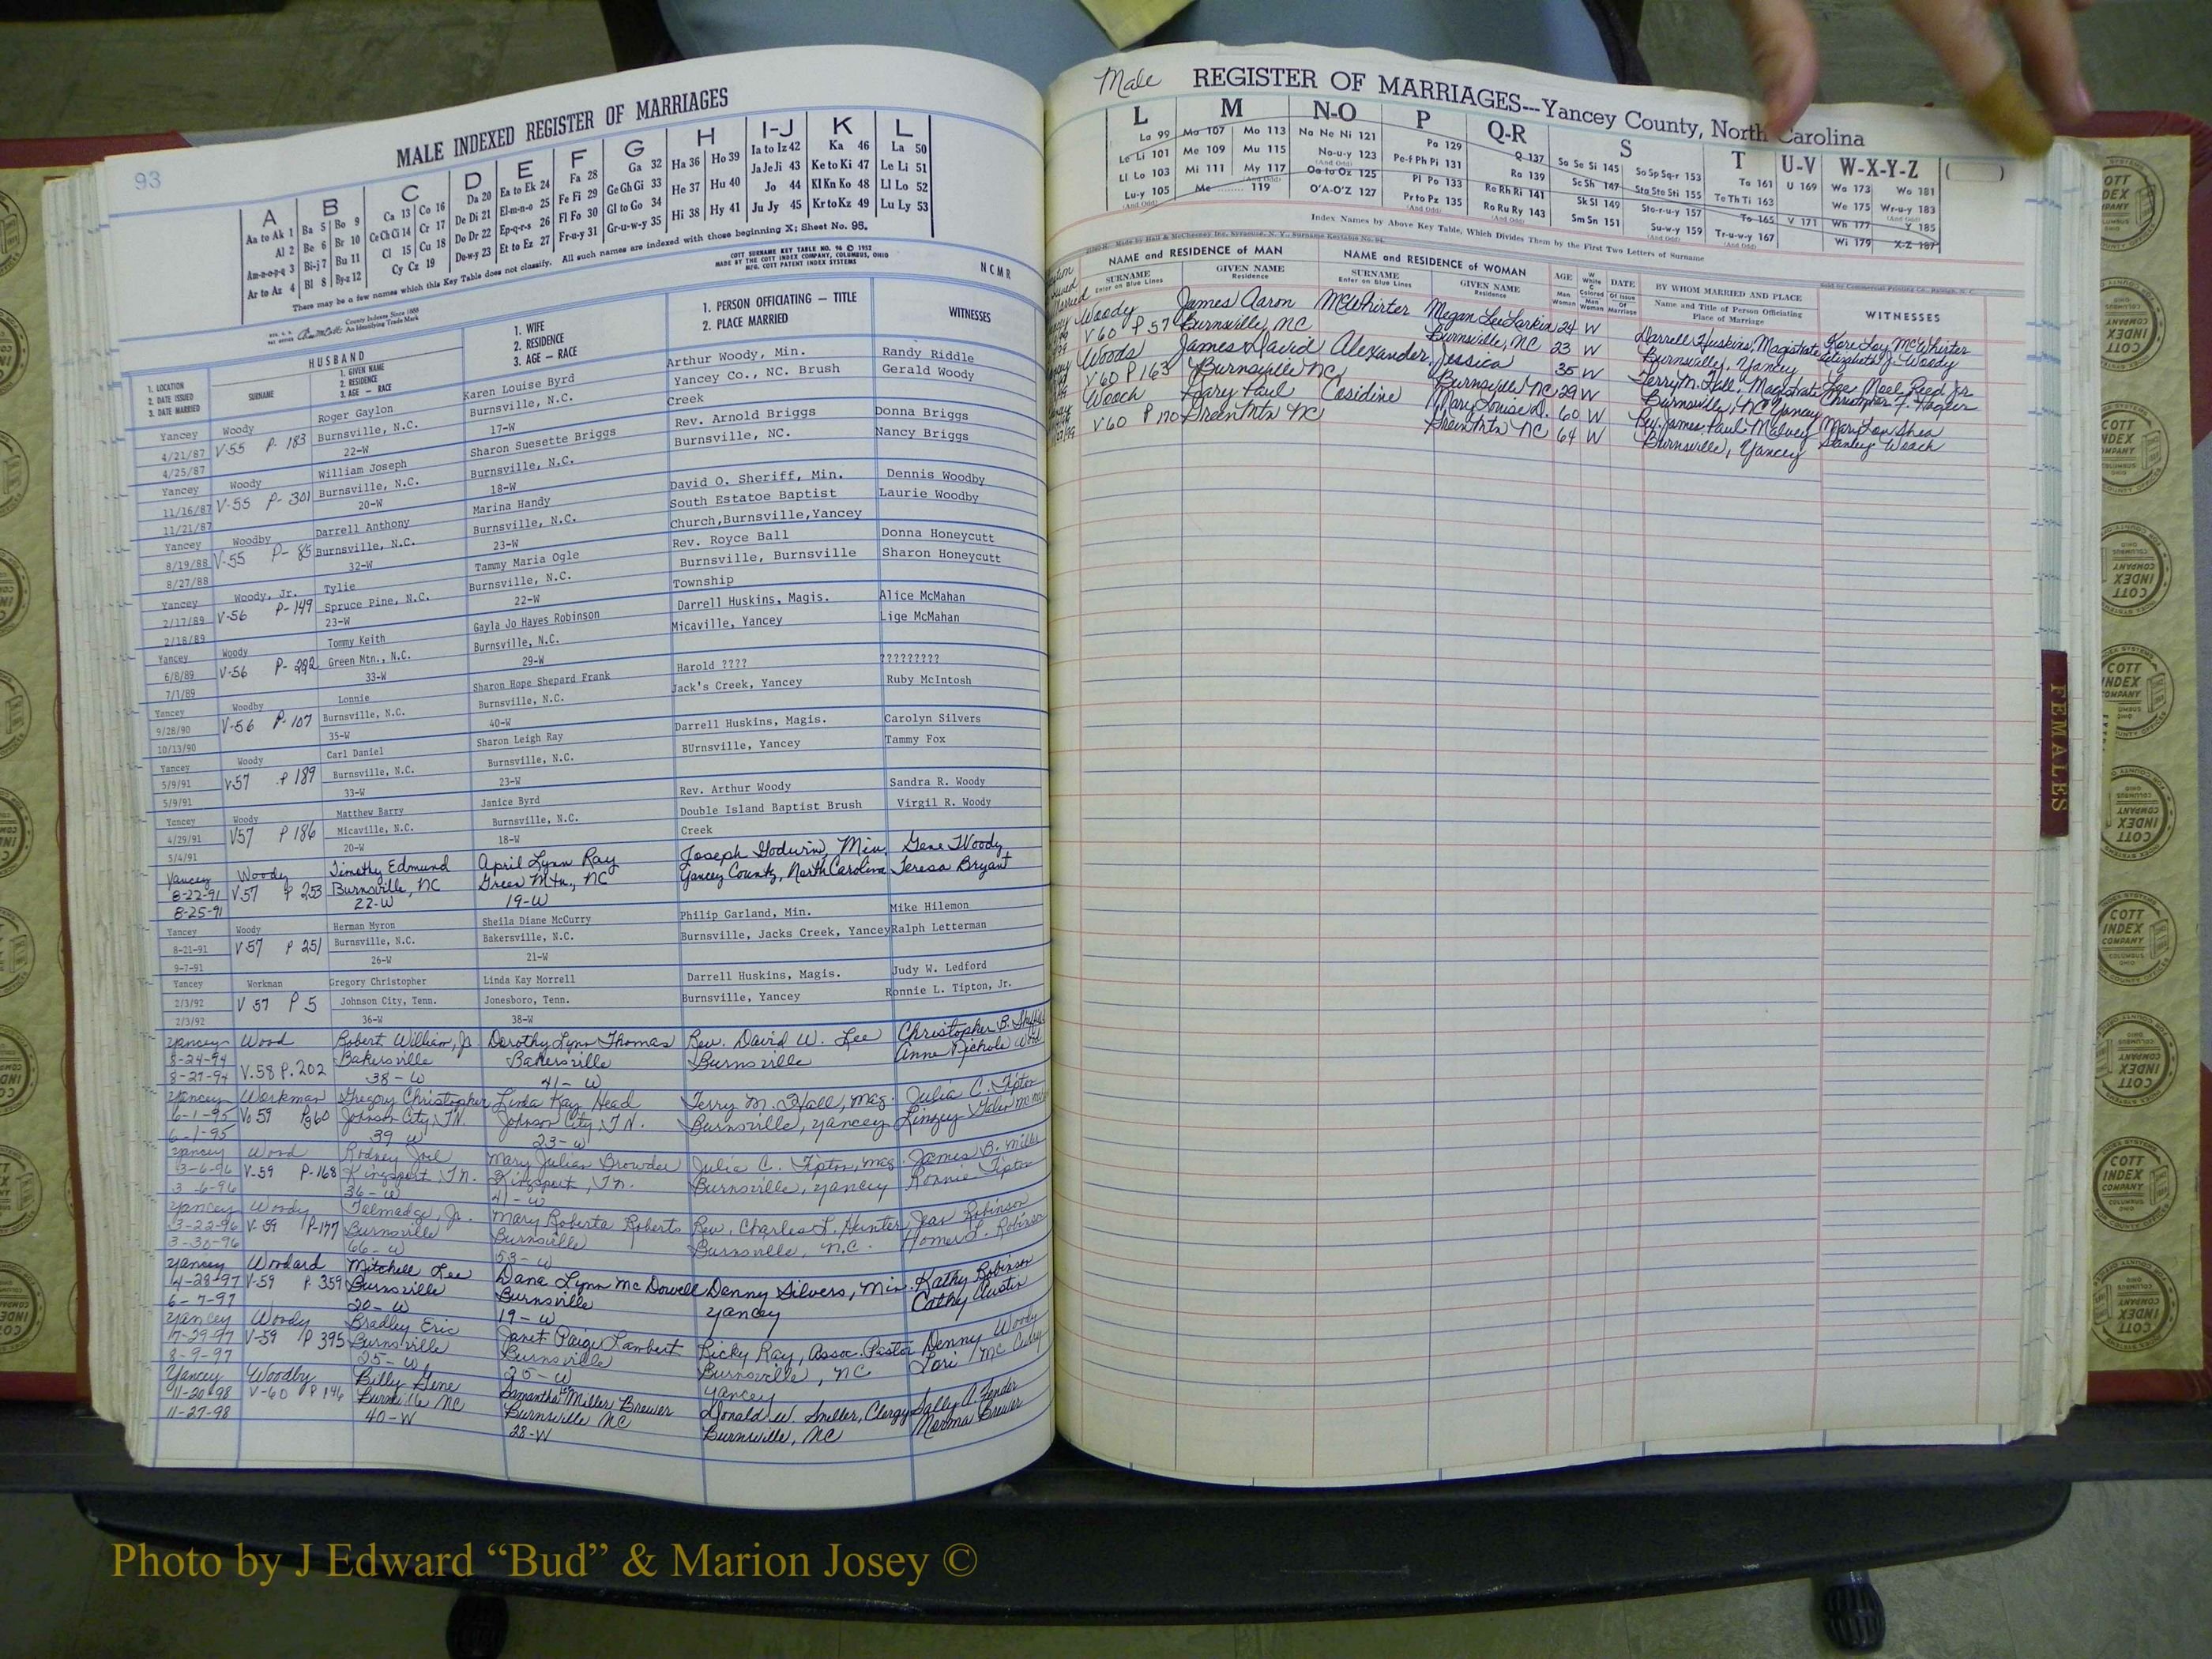 93
MALE INDEXED REGISTER OF MARRIAGES
A B C D E F G H I-J K L
Aa to Ak 1 Ba 5 Bo 9 Ca 13 Co 16 Da 20 Ea to Ek 24 Fa 28 Ga 32 Ha 36 Ho 39 Ia to Iz 42 Ka 46 La 50
Al 2 Be 6 Br 10 Ce Ch Ci 14 Cr 17 De Di 21 El-m-n-o 25 Fe Fi 29 Ge Gh Gi 33 He 37 Hu 40 Ja Je Ji 43 Ke to Ki 47 Le Li 51
Am-n-o-p-q 3 Bi-j 7 Bu 11 Cl 15 Cu 18 Do Dr 22 Ep-q-r-s 26 Fl Fo 30 Gl to Go 34 Hi 38 Hy 41 Jo 44 Kl Kn Ko 48 Ll Lo 52
Ar to Az 4 Bl 8 By-z 12 Cy Cz 19 Du-w-y 23 Et to Ez 27 Fr-u-y 31 Gr-u-w-y 35 Ju Jy 45 Kr to Kz 49 Lu Ly 53
There may be a few names which this Key Table does not classify. All such names are indexed with those beginning X; Sheet No. 95.
County Indexes Since 1888
An Identifying Trade Mark
COTT SURNAME KEY TABLE NO. 96 © 1952
MADE BY THE COTT INDEX COMPANY, COLUMBUS, OHIO
MFG. COTT PATENT INDEX SYSTEMS
NCMR
1. LOCATION
2. DATE ISSUED
3. DATE MARRIED
HUSBAND
SURNAME
1. GIVEN NAME
2. RESIDENCE
3. AGE — RACE
1. WIFE
2. RESIDENCE
3. AGE — RACE
1. PERSON OFFICIATING — TITLE
2. PLACE MARRIED
WITNESSES
Yancey Woody Roger Gaylon Karen Louise Byrd Arthur Woody, Min. Randy Riddle
4/21/87 V-55 P. 183 Burnsville, N.C. Burnsville, N.C. Yancey Co., NC. Brush Gerald Woody
4/25/87 22-W 17-W Creek
Yancey Woody William Joseph Sharon Suesette Briggs Rev. Arnold Briggs Donna Briggs
11/16/87 V-55 P-301 Burnsville, N.C. Burnsville, N.C. Burnsville, NC. Nancy Briggs
11/21/87 20-W 18-W
Yancey Woodby Darrell Anthony Marina Handy David O. Sheriff, Min. Dennis Woodby
8/19/88 V-55 P-85 Burnsville, N.C. Burnsville, N.C. South Estatoe Baptist Laurie Woodby
8/27/88 32-W 23-W Church,Burnsville,Yancey
Yancey Woody, Jr. Tylie Tammy Maria Ogle Rev. Royce Ball Donna Honeycutt
2/17/89 V-56 P-149 Spruce Pine, N.C. Burnsville, N.C. Burnsville, Burnsville Sharon Honeycutt
2/18/89 23-W 22-W Township
Yancey Woody Tommy Keith Gayla Jo Hayes Robinson Darrell Huskins, Magis. Alice McMahan
6/8/89 V-56 P-292 Green Mtn., N.C. Burnsville, N.C. Micaville, Yancey Lige McMahan
7/1/89 33-W 29-W
Yancey Woodby Lonnie Sharon Hope Shepard Frank Harold ???? ?????????
9/28/90 V-56 P-107 Burnsville, N.C. Burnsville, N.C. Jack's Creek, Yancey Ruby McIntosh
10/13/90 35-W 40-W
Yancey Woody Carl Daniel Sharon Leigh Ray Darrell Huskins, Magis. Carolyn Silvers
5/9/91 V-57 P 189 Burnsville, N.C. Burnsville, N.C. BUrnsville, Yancey Tammy Fox
5/9/91 33-W 23-W
Yancey Woody Matthew Barry Janice Byrd Rev. Arthur Woody Sandra R. Woody
4/29/91 V57 P 186 Micaville, N.C. Burnsville, N.C. Double Island Baptist Brush Virgil R. Woody
5/4/91 20-W 18-W Creek
Yancey Woody Timothy Edmund April Lynn Ray Joseph Godwin, Min. Gene Woody
8-22-91 V57 P 253 Burnsville, NC Green Mtn., NC Yancey County, North Carolina Teresa Bryant
8-25-91 22-W 19-W
Yancey Woody Herman Myron Sheila Diane McCurry Philip Garland, Min. Mike Hilemon
8-21-91 V57 P 251 Burnsville, N.C. Bakersville, N.C. Burnsville, Jacks Creek, Yancey Ralph Letterman
9-7-91 26-W 21-W
Yancey Workman Gregory Christopher Linda Kay Morrell Darrell Huskins, Magis. Judy W. Ledford
2/3/92 V 57 P 5 Johnson City, Tenn. Jonesboro, Tenn. Burnsville, Yancey Ronnie L. Tipton, Jr.
2/3/92 36-W 38-W
Yancey Wood Robert William, Jr Dorothy Lynn Thomas Rev. David W. Lee Christopher B.
8-24-94 V.58 P.202 Bakersville Bakersville Burnsville Anne Nichole Wood
8-27-94 38-W 41-W
Yancey Workman Gregory Christopher Linda Kay Head Terry M. Hall, Mag. Julia C. Tipton
6-1-95 Vo 59 P360 Johnson City, TN. Johnson City, TN. Burnsville, Yancey
6-1-95 39 W 23-W
Yancey Wood Rodney Joel Mary Julian Browder Julia C. Tipton, Mag. James B. Miller
3-6-96 V-59 P-168 Kingsport, TN. Kingsport, Tn. Burnsville, Yancey Ronnie Tipton
3-6-96 36-W 41-W
Yancey Woody Talmadge, Jr. Mary Roberta Roberts Rev. Charles L. Hunter Jean Robinson
3-22-96 V-59 P-177 Burnsville Burnsville Burnsville, N.C. Homer L. Robinson
3-30-96 66-W 53-W
Yancey Woodard Mitchell Lee Dana Lynn McDowell Denny Silvers, Min. Kathy Robinson
4-28-97 V-59 P. 359 Burnsville Burnsville Yancey Cathy Austin
6-7-97 20-W 19-W
Yancey Woody Bradley Eric Janet Paige Lambert Ricky Ray, Assoc. Pastor Denny Woody
7-29-97 V-59 P 395 Burnsville Burnsville Burnsville, NC Lori McCurry
8-9-97 25-W 25-W Yancey
Yancey Woodby Billy Gene Samantha Miller Brewer Donald W. Smiller, Clergy Sally A. Fender
11-20-98 V-60 P 146 Burnsville NC Burnsville NC Burnsville, NC Norma Brewer
11-27-98 40-W 28-W
Male REGISTER OF MARRIAGES---Yancey County, North Carolina
L M N-O P Q-R S T U-V W-X-Y-Z
La 99 Ma 107 Mo 113 Na Ne Ni 121 Pa 129 Q 137 Sa Se Si 145 So Sp Sq-r 153 Ta 161 U 169 Wa 173 Wo 181
Le Li 101 Me 109 Mu 115 No-u-y 123 Pe-f Ph Pi 131 Ra 139 Sc Sh 147 Sta Ste Sti 155 Te Th Ti 163 We 175 Wr-u-y 183
Ll Lo 103 Mi 111 My 117 Oa to Oz 125 Pl Po 133 Re Rh Ri 141 Sk Sl 149 Sto-r-u-y 157 To 165 V 171 Wh 177 Y 185
Lu-y 105 Mc 119 O'A-O'Z 127 Pr to Pz 135 Ro Ru Ry 143 Sm Sn 151 Su-w-y 159 Tr-u-w-y 167 Wi 179 X-Z 187
Index Names by Above Key Table, Which Divides Them by the First Two Letters of Surname
Made by Hall & McChesney Inc, Syracuse, N. Y., Surname Keytable No. 94.
Sold by Commercial Printing Co., Raleigh, N. C.
NAME and RESIDENCE of MAN
SURNAME
Enter on Blue Lines
GIVEN NAME
Residence
NAME and RESIDENCE of WOMAN
SURNAME
Enter on Blue Lines
GIVEN NAME
Residence
AGE
Man
Woman
W
White
C
Colored
Man
Woman
DATE
Of Issue
Of Marriage
BY WHOM MARRIED AND PLACE
Name and Title of Person Officiating
Place of Marriage
WITNESSES
Woody James Aaron McWhirter Megan Lee Larkin 24 W Darrell Huskins, Magistrate Kore Loy McWhirter
V60 P 57 Burnsville, NC Burnsville, NC 23 W Burnsville, Yancey Elizabeth J. Woody
Woods James David Alexander Jessica 35 W Terry M. Hall, Magistrate Lee Noel Reed Jr.
V60 P 163 Burnsville NC Burnsville NC 29 W Burnsville, NC Yancey Christopher F. Hagler
Woach Gary Paul Cosidine Mary Louise D. 60 W Rev. James Paul Malvey Mary Lou Shea
V60 P 170 Green Mtn NC Green Mtn NC 64 W Burnsville, Yancey Stanley Woach
FEMALES
COTT
INDEX
COMPANY
COLUMBUS
OHIO
Photo by J Edward “Bud” & Marion Josey ©